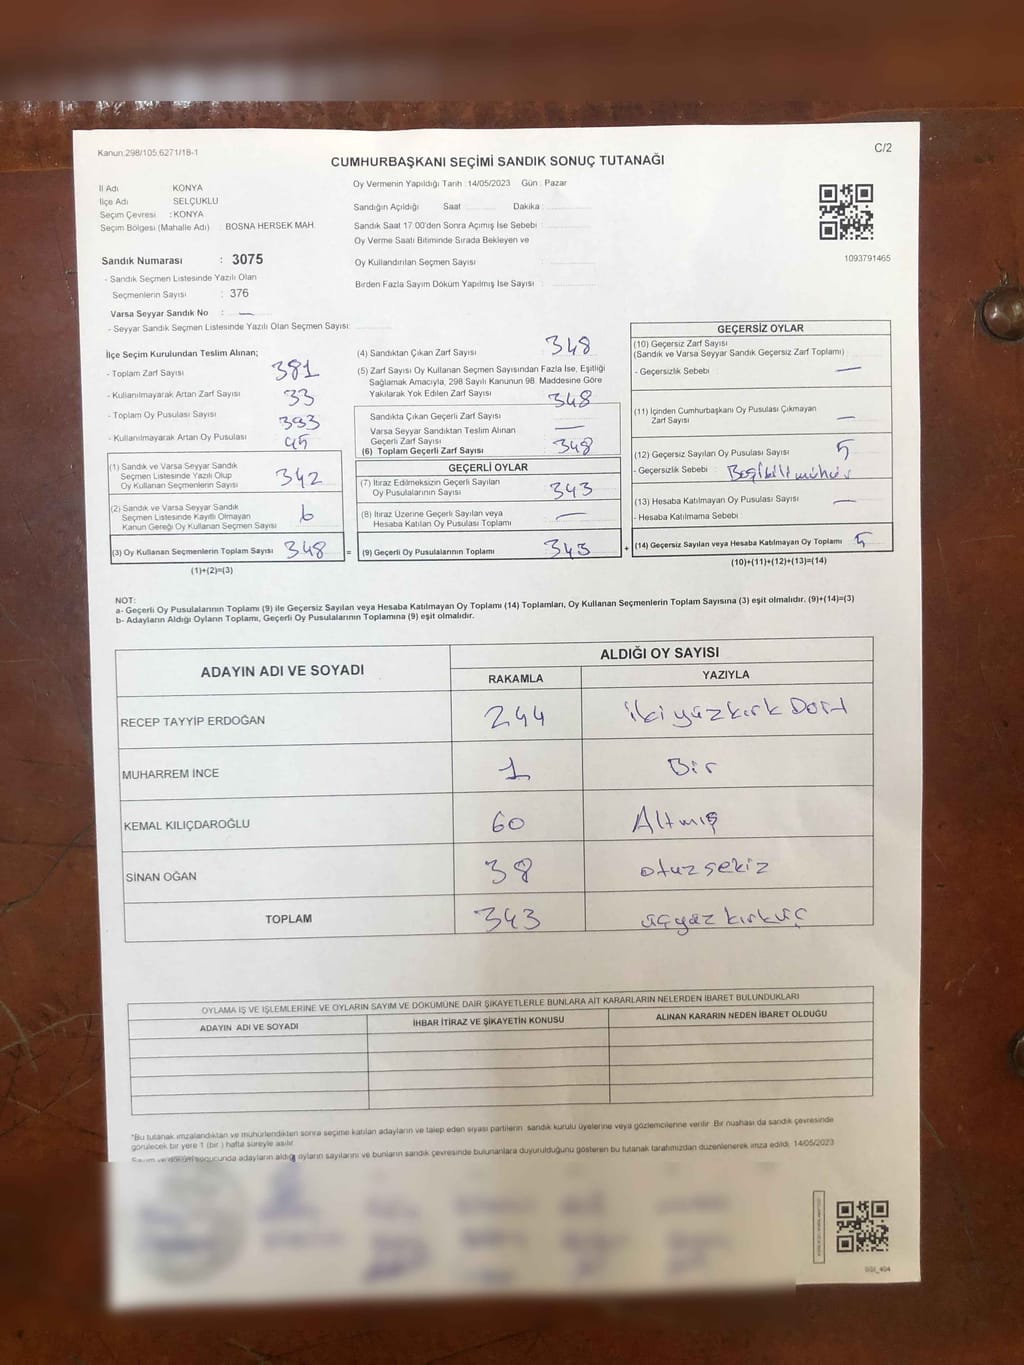 Kanun:298/105,6271/18-1
C/2
CUMHURBAŞKANI SEÇİMİ SANDIK SONUÇ TUTANAĞI
İl Adı KONYA
İlçe Adı SELÇUKLU
Seçim Çevresi : KONYA
Seçim Bölgesi (Mahalle Adı) : BOSNA HERSEK MAH.
Oy Vermenin Yapıldığı Tarih :14/05/2023 Gün : Pazar
Sandığın Açıldığı Saat Dakika :
Sandık Saat 17:00'den Sonra Açımış İse Sebebi :
Oy Verme Saati Bitiminde Sırada Bekleyen ve
Oy Kullandırılan Seçmen Sayısı :
Birden Fazla Sayım Döküm Yapılmış İse Sayısı :
1093791465
Sandık Numarası : 3075
- Sandık Seçmen Listesinde Yazılı Olan
Seçmenlerin Sayısı : 376
Varsa Seyyar Sandık No : —
- Seyyar Sandık Seçmen Listesinde Yazılı Olan Seçmen Sayısı:
İlçe Seçim Kurulundan Teslim Alınan;
- Toplam Zarf Sayısı 381
- Kullanılmayarak Artan Zarf Sayısı 33
- Toplam Oy Pusulası Sayısı 393
- Kullanılmayarak Artan Oy Pusulası 45
(1) Sandık ve Varsa Seyyar Sandık
Seçmen Listesinde Yazılı Olup
Oy Kullanan Seçmenlerin Sayısı 342
(2) Sandık ve Varsa Seyyar Sandık
Seçmen Listesinde Kayıtlı Olmayan
Kanun Gereği Oy Kullanan Seçmen Sayısı 6
(3) Oy Kullanan Seçmenlerin Toplam Sayısı 348 =
(1)+(2)=(3)
(4) Sandıktan Çıkan Zarf Sayısı 348
(5) Zarf Sayısı Oy Kullanan Seçmen Sayısından Fazla İse, Eşitliği
Sağlamak Amacıyla, 298 Sayılı Kanunun 98. Maddesine Göre
Yakılarak Yok Edilen Zarf Sayısı
Sandıkta Çıkan Geçerli Zarf Sayısı 348
Varsa Seyyar Sandıktan Teslim Alınan
Geçerli Zarf Sayısı —
(6) Toplam Geçerli Zarf Sayısı 348
GEÇERLİ OYLAR
(7) İtiraz Edilmeksizin Geçerli Sayılan
Oy Pusulalarının Sayısı 343
(8) İtiraz Üzerine Geçerli Sayılan veya
Hesaba Katılan Oy Pusulası Toplamı —
(9) Geçerli Oy Pusulalarının Toplamı 343 +
GEÇERSİZ OYLAR
(10) Geçersiz Zarf Sayısı
(Sandık ve Varsa Seyyar Sandık Geçersiz Zarf Toplamı)
- Geçersizlik Sebebi : —
(11) İçinden Cumhurbaşkanı Oy Pusulası Çıkmayan
Zarf Sayısı —
(12) Geçersiz Sayılan Oy Pusulası Sayısı 5
- Geçersizlik Sebebi :
(13) Hesaba Katılmayan Oy Pusulası Sayısı —
- Hesaba Katılmama Sebebi
(14) Geçersiz Sayılan veya Hesaba Katılmayan Oy Toplamı 5
(10)+(11)+(12)+(13)=(14)
NOT:
a- Geçerli Oy Pusulalarının Toplamı (9) ile Geçersiz Sayılan veya Hesaba Katılmayan Oy Toplamı (14) Toplamları, Oy Kullanan Seçmenlerin Toplam Sayısına (3) eşit olmalıdır. (9)+(14)=(3)
b- Adayların Aldığı Oyların Toplamı, Geçerli Oy Pusulalarının Toplamına (9) eşit olmalıdır.
ADAYIN ADI VE SOYADI
ALDIĞI OY SAYISI
RAKAMLA YAZIYLA
RECEP TAYYİP ERDOĞAN 244 ikiyüzkırk Dört
MUHARREM İNCE 1 Bir
KEMAL KILIÇDAROĞLU 60 Altmış
SİNAN OĞAN 38 otuzsekiz
TOPLAM 343 üçyüz kırküç
OYLAMA İŞ VE İŞLEMLERİNE VE OYLARIN SAYIM VE DÖKÜMÜNE DAİR ŞİKAYETLERLE BUNLARA AİT KARARLARIN NELERDEN İBARET BULUNDUKLARI
ADAYIN ADI VE SOYADI İHBAR İTİRAZ VE ŞİKAYETİN KONUSU ALINAN KARARIN NEDEN İBARET OLDUĞU
*Bu tutanak imzalandıktan ve mühürlendikten sonra seçime katılan adayların ve talep eden siyasi partilerin sandık kurulu üyelerine veya gözlemcilerine verilir. Bir nüshası da sandık çevresinde
görülecek bir yere 1 (bir ) hafta süreyle asılır.
Sayım ve döküm sonucunda adayların aldığı oyların sayılarını ve bunların sandık çevresinde bulunanlara duyurulduğunu gösteren bu tutanak tarafımızdan düzenlenerek imza edildi. 14/05/2023